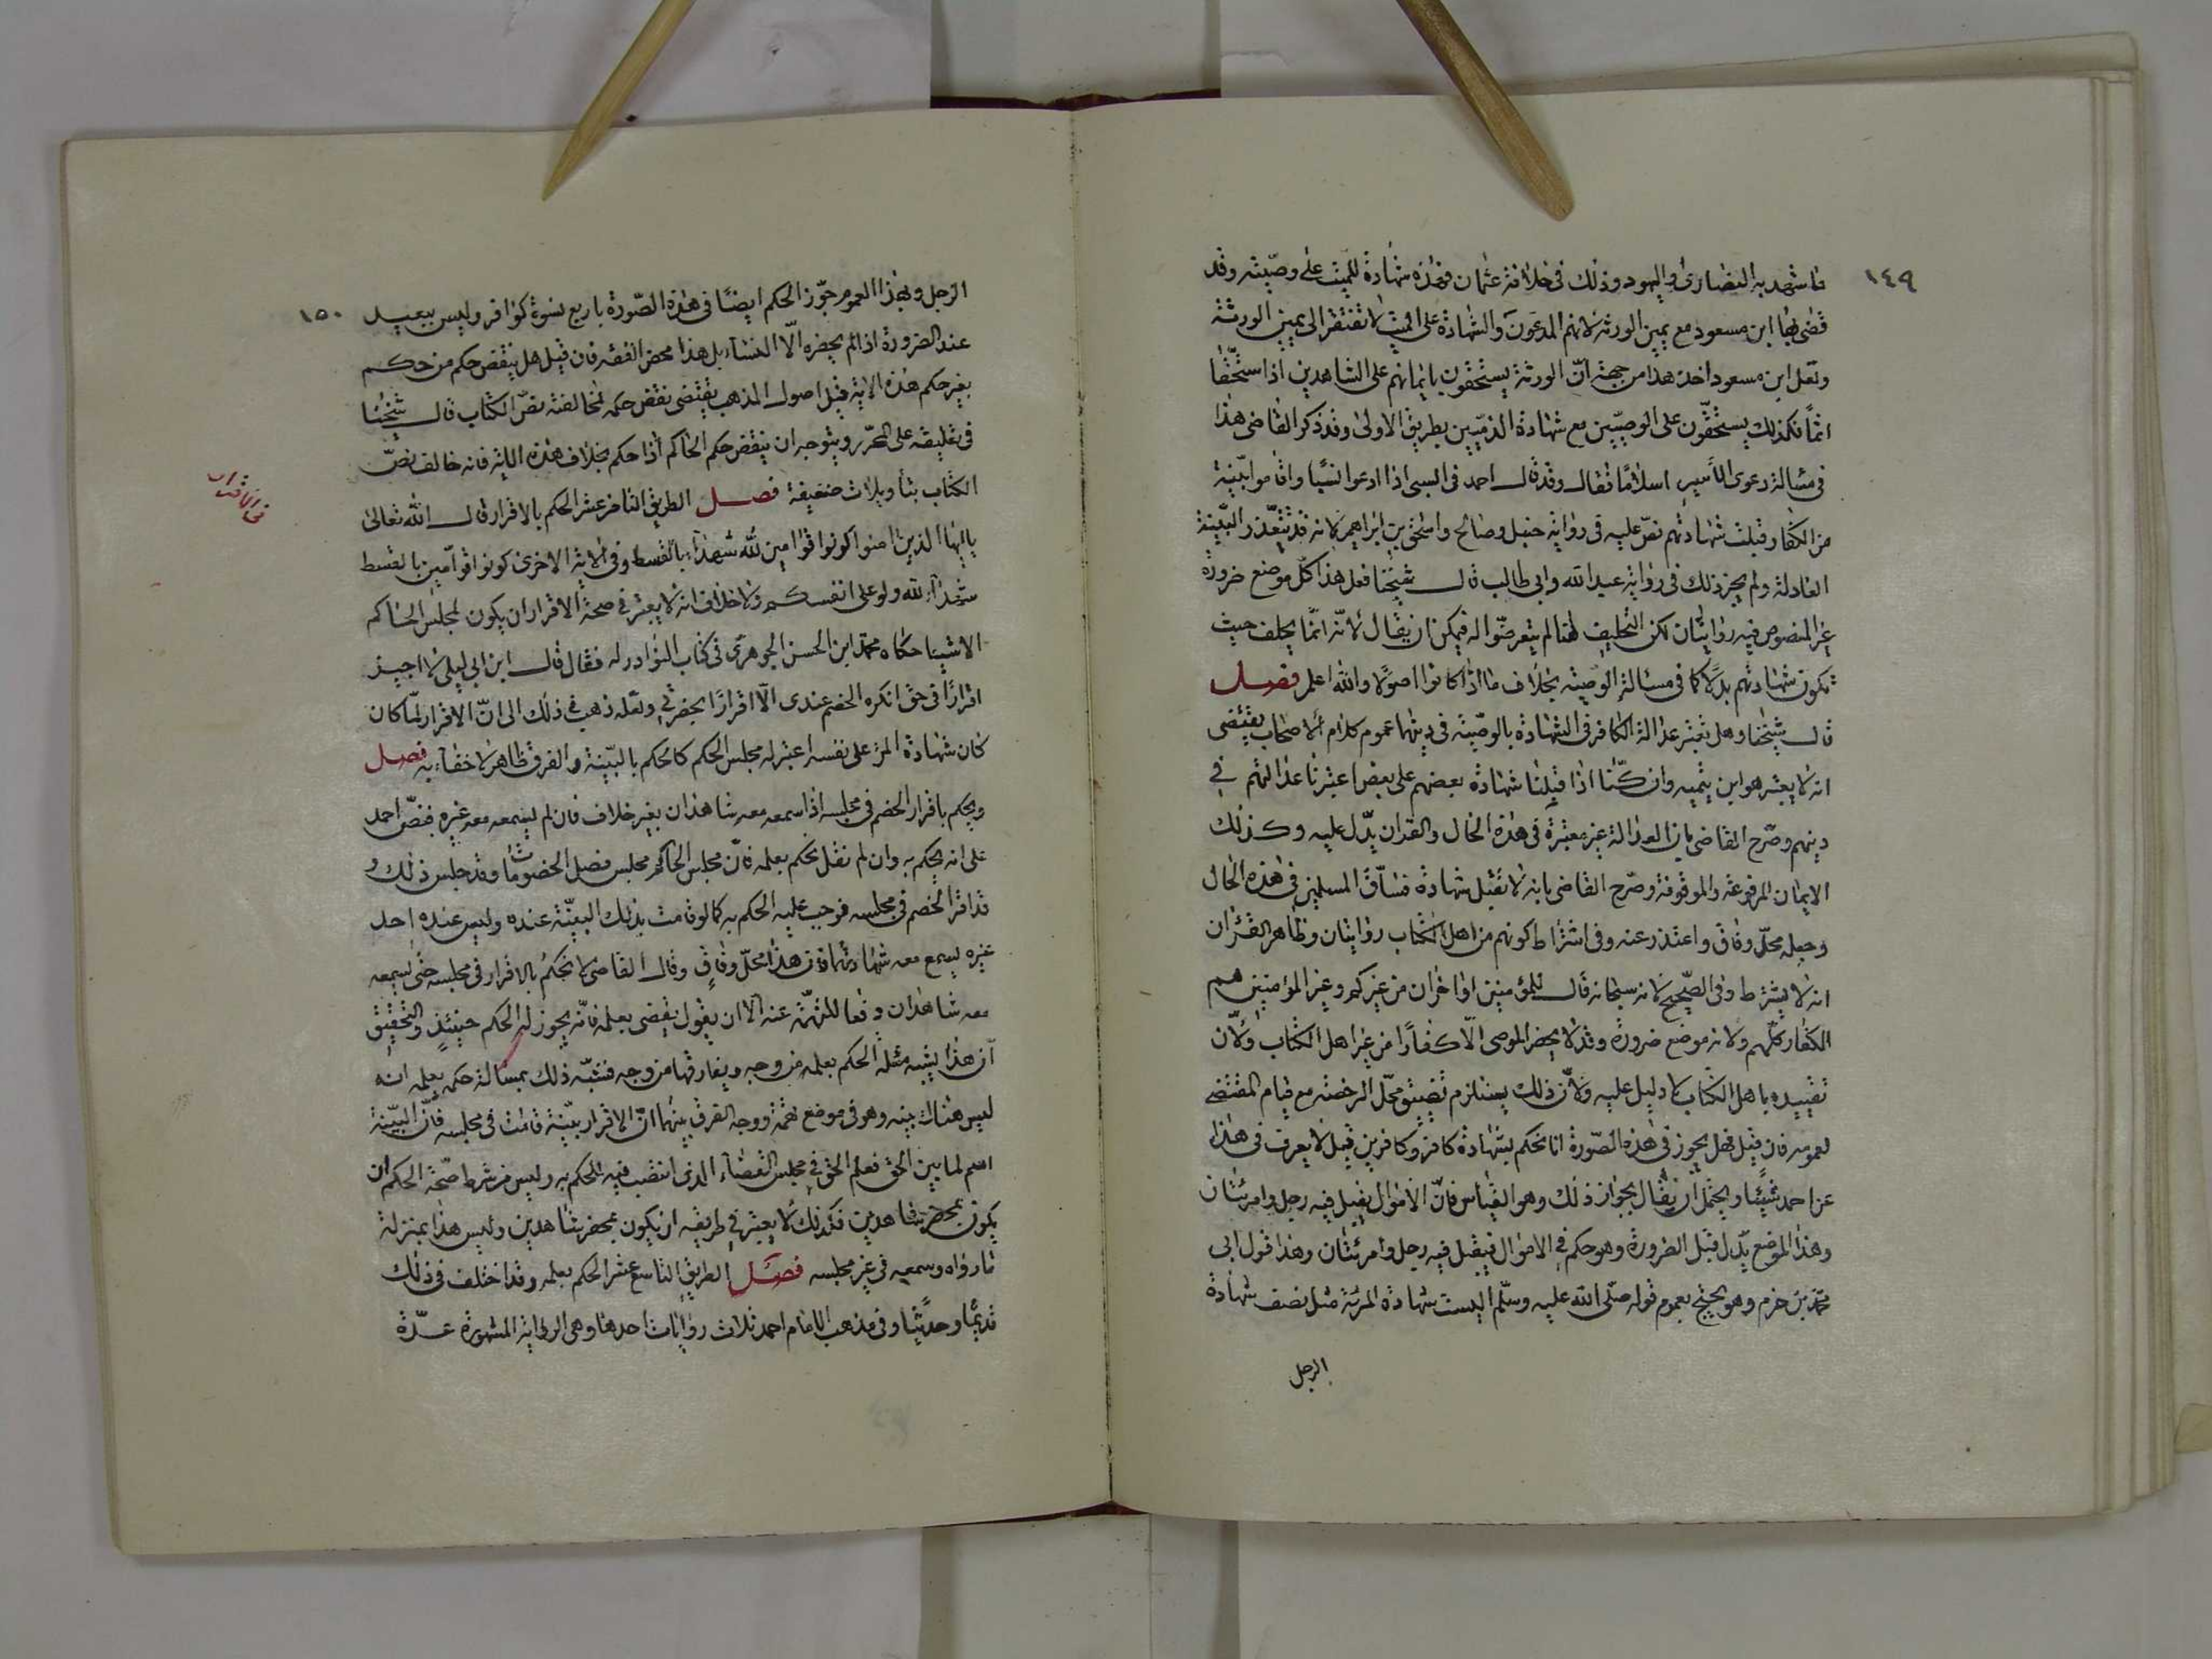 ١٤٩
ما شهد به النصارى واليهود وذلك فى خلافة عثمان فهذه شهادة للميت على وصيّته وقد
قضى بها ابن مسعود مع يمين الورثة لانهم المدعون والشهادة على الميت لا تفتقر الى يمين الورثة
ولعل ابن مسعود اخذ هذا من جهة انّ الورثة يستحقون بايمانهم على الشاهدين اذا استحقّا
اثمًا فكذلك يستحقّون على الوصيّين مع شهادة الذمّيين بطريق الاولى وقد ذكر القاضى هذا
فى مسألة دعوى الأسير اسلامًا فقال وقد قال احمد فى السبى اذا ادعوا نسبًا واقاموا بيّنة
من الكفار قبلت شهادتهم نصّ عليه فى رواية حنبل وصالح واسحٰق بن ابراهيم لانه قد تتعذر البيّنة
العادلة ولم يجز ذلك فى رواية عبد الله وابى طالب قال شيخنا فعلى هذا كلّ موضع ضرورة
غير المنصوص فيه روايتان لكن التحليف هنا لم يتعرضوا له فيمكن ان يقال لانّه انّما يحلف حيث
تكون شهادتهم بدلًا كما فى مسئلة الوصيّة بخلاف ما اذا كانوا اصولًا والله اعلم فصل
قال شيخنا وهل تعتبر عدالة الكافر فى الشهادة بالوصيّة فى دينها عموم كلام الاصحاب يقتضى
انه لا يعتبر هو ابن يتميه وان كنّا اذا قبلنا شهادة بعضهم على بعض اعتبرنا عدالتهم فى
دينهم وصرّح القاضى بان العدالة غير معتبرة فى هذه الحال والقران يدّل عليه وكذلك
الايمان المرفوعة والموقوفة وصرّح القاضى بانه لا تقبل شهادة فسّاق المسلمين فى هذه الحال
وجعله محلّ وفاق واعتذر عنه وفى اشتراط كونهم من اهل الكتاب روايتان وظاهر القران
انه لا يشترط وفى الصّحيح لانه سبحانه قال للمؤمنين او اخران من غيركم وغير المؤمنين هم
الكفار كلّهم ولانه موضع ضرورة وقد لا يحضر الموصى الّا كفارًا من غير اهل الكتاب ولانّ
تقييده باهل الكتاب لا دليل عليه ولانّ ذلك يستلزم تضييق محلّ الرخصة مع قيام المقتضى
لعمومه فان قيل فهل يجوز فى هذه الصّورة ان نحكم بشهادة كافر وكافرين قيل لا يعرف فى هذا
عن احمد شيئًا ويحتمل ان يقال يجواز ذلك وهو القياس فانّ الاموال يقبل فيه رجل وامرئتان
وهذا الموضع يدّل قبل الضرورة وهو حكم فى الاموال فيقبل فيه رجل وامرئتان وهذا قول ابى
محمّد بن حزم وهو يحتج بعموم قوله صلّى الله عليه وسلّم اليست شهادة المرئة مثل نصف شهادة
الرجل
١٥٠
الرجل وبهذا العموم جوّز الحكم ايضًا فى هذه الصّورة باربع نسوة كوافر وليس ببعيد
عند الضرورة اذا لم يحضره الّا النساء بل هذا محض الفقه فان قيل هل ينقض حكم من حكم
بغير حكم هذه الاية قيل اصول المذهب يقتضى نقض حكمه لمخالفته نصّ الكتاب قال شيخنا
فى تعليقه على المحرّر ويتوجه ان ينقض حكم الحاكم اذا حكم بخلاف هذه الاية فانه خالف نصّ
الكتاب بتأويلات ضعيفة فصل الطريق الثامن عشر الحكم بالاقرار قال الله تعالى
ياايها الذين امنوا كونوا قوامين لله شهداء بالقسط وفى الاية الاخرى كونوا قوّامين بالقسط
شهداء لله ولو على انفسكم ولا خلاف انه لا يعتبر فى صحة الاقرار ان يكون لمجلس الحاكم
الا شيئا حكاه محمّد ابن الحسن الجوهرى فى كتاب النوادر له فقال قال ابن ابى ليلى لا اجيز
اقرارًا فى حق انكره الخصم عندى الّا اقرارًا بحضرتى ولعله ذهب فى ذلك الى انّ الاقرار لمّا كان
كان شهادة المرء على نفسه اعتبر له مجلس الحكم كالحكم بالبيّنة والفرق ظاهر لا خفاء به فصل
ويحكم باقرار الخصم فى مجلسه اذا سمعه معه شاهدان بغير خلاف فان لم يسمعه معه غيره فنصّ احمد
على انه يحكم به وان لم نقل يحكم بعلمه فانّ مجلس الحاكم مجلس فصل الخصومات وقد جلس ذلك و
قد اقرّ الخصم فى مجلسه فوجب عليه الحكم به كما لو قامت بذلك البيّنة عنده وليس عنده احد
غيره يسمع معه شهادتهما فان هذا محلّ وفاقٍ وقال القاضى لا يحكمُ بالاقرار فى مجلسه حتى يسمعه
معه شاهدان دفعا للتهمّة عنه الّا ان يقول يقضى بعلمه فانّه يجوز له الحكم حينئذٍ والتحقيق
انّ هذا يشبه مسئلة الحكم بعلمه من وجه ويفارقها من وجه فشبّه ذلك بمسألة حكمه بعلمه انه
ليس هناك بينه وهو فى موضع تهمة ووجه الفرق بينهما انّ الاقرار بيّنة قامت فى مجلسه فانّ البيّنة
اسم لما يبين الحق فعلم الحق فى مجلس القضاء الذى انتصب فيه للحكم به وليس من شرط صحّة الحكم ان
يكون بمحضر شاهدين فكذلك لا يعتبر فى طريقه ان يكون بمحضر شاهدين وليس هذا بمنزلة
ما رواه وسمعه فى غير مجلسه فصل الطريق التاسع عشر الحكم بعلمه وقد اختلف فى ذلك
قديمًا وحديثًا وفى مذهب الامام احمد ثلاث روايات احدها وهى الرواية المشهورة عـــدّة